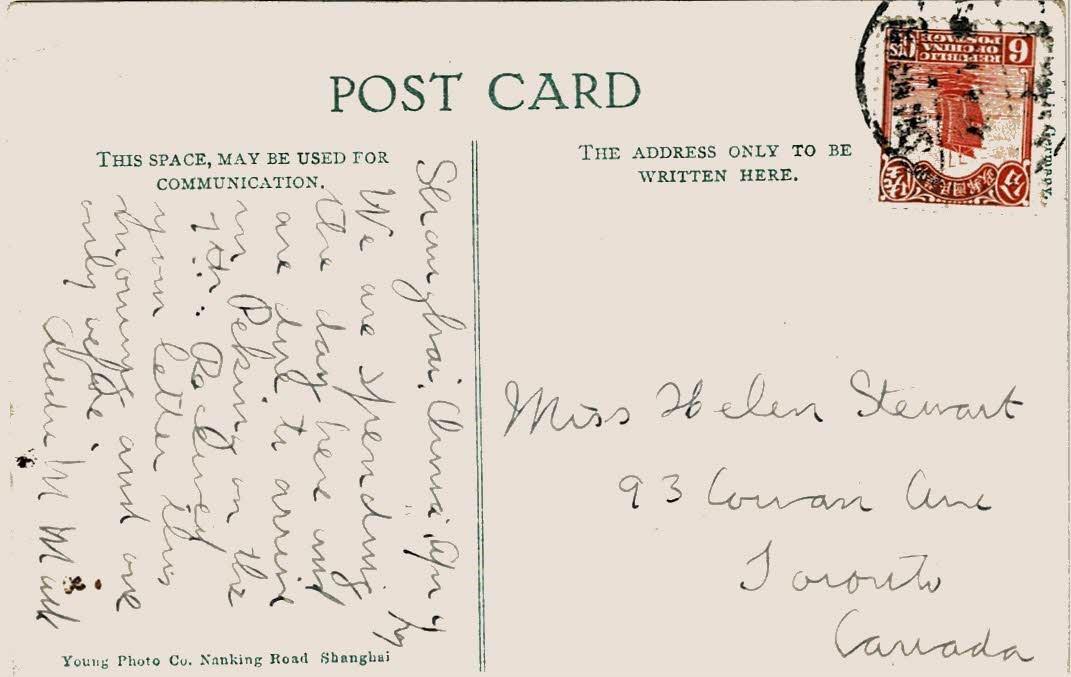 POST CARD
THIS SPACE, MAY BE USED FOR
COMMUNICATION.
THE ADDRESS ONLY TO BE
WRITTEN HERE.
Shanghai, China, Apr 4
We are spending
the day here and
are due to arrive
in Peking on the
7th. Received
your letter this
morning and one
only
Addie M
Miss Helen Stewart
93 Cowan Ave
Toronto
Canada
6
REPUBLIC
OF CHINA
POSTAGE
Young Photo Co. Nanking Road Shanghai